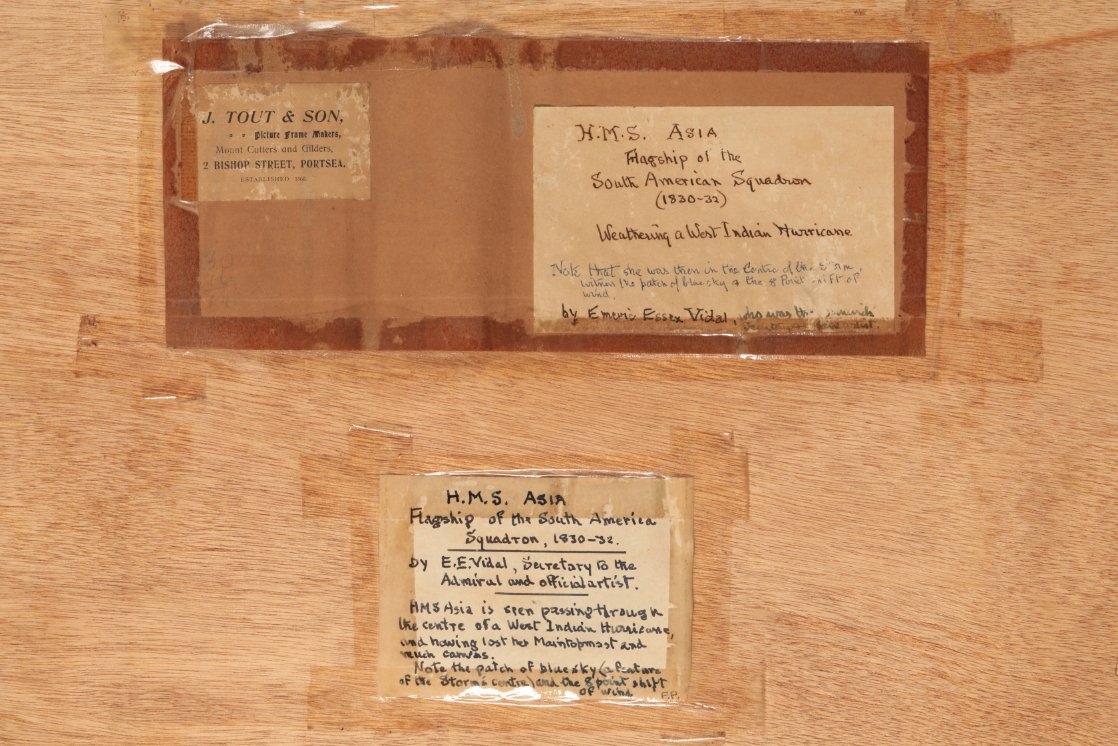 J. TOUT & SON,
Picture Frame Makers,
Mount Cutters and Gilders,
2 BISHOP STREET, PORTSEA.
ESTABLISHED
H.M.S. ASIA
Flagship of the
South American Squadron
(1830-32)
Weathering a West Indian Hurricane
Note that she was then in the Centre of the
witness the patch of blue sky & the 8 Point shift of
wind.
by Emeric Essex Vidal, who was the
H.M.S. ASIA
Flagship of the South America
Squadron, 1830-32.
by E.E.Vidal, Secretary to the
Admiral and official artist.
HMS Asia is seen passing through
the centre of a West Indian Hurricane,
and having lost her Maintopmast and
much canvas.
Note the patch of blue sky (a feature
of the Storm's centre) and the 8 point shift
of wind
F.P.